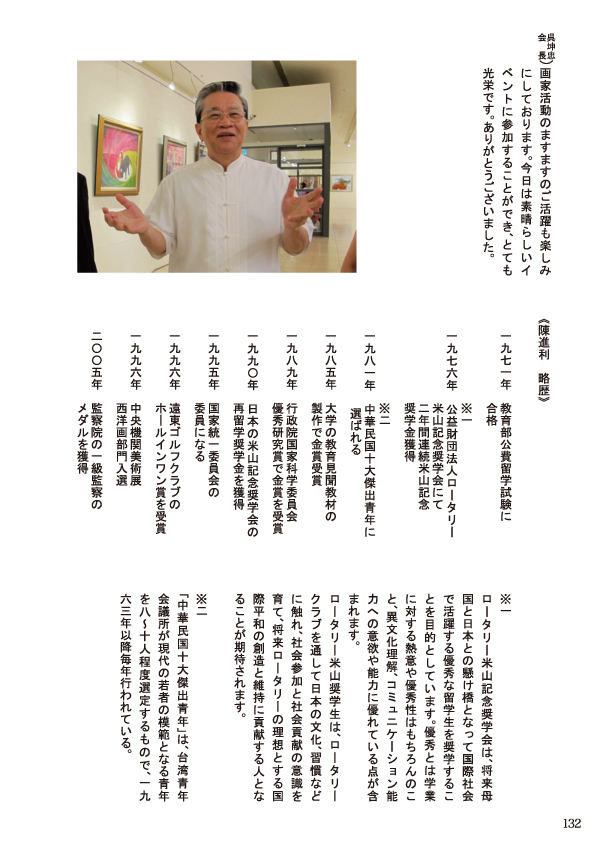 呉坤忠
会　長）画家活動のますますのご活躍も楽しみ
にしております。今日は素晴らしいイ
ベントに参加することができ、とても
光栄です。ありがとうございました。
《陳進利　略歴》
一九七一年　教育部公費留学試験に
合格
※一
一九七六年　公益財団法人ロータリー
米山記念奨学会にて
二年間連続米山記念
奨学金獲得
※二
一九八一年　中華民国十大傑出青年に
選ばれる
一九八五年　大学の教育見聞教材の
製作で金賞受賞
一九八九年　行政院国家科学委員会
優秀研究賞で金賞を受賞
一九九〇年　日本の米山記念奨学会の
再留学奨学金を獲得
一九九五年　国家統一委員会の
委員になる
一九九六年　遠東ゴルフクラブの
ホールインワン賞を受賞
一九九六年　中央機関美術展
西洋画部門入選
二〇〇五年　監察院の一級監察の
メダルを獲得
※一
ロータリー米山記念奨学会は、将来母
国と日本との懸け橋となって国際社会
で活躍する優秀な留学生を奨学するこ
とを目的としています。優秀とは学業
に対する熱意や優秀性はもちろんのこ
と、異文化理解、コミュニケーション能
力への意欲や能力に優れている点が含
まれます。
ロータリー米山奨学生は、ロータリー
クラブを通して日本の文化、習慣など
に触れ、社会参加と社会貢献の意識を
育て、将来ロータリーの理想とする国
際平和の創造と維持に貢献する人とな
ることが期待されます。
※二
「中華民国十大傑出青年」は、台湾青年
会議所が現代の若者の模範となる青年
を八〜十人程度選定するもので、一九
六三年以降毎年行われている。
132